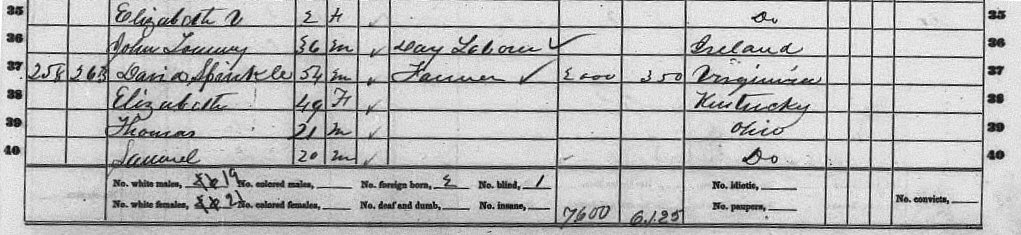 35 Elizabeth V 2 F Do 35
36 John Tommy 36 m Day Labour Ireland 36
37 258 263 David Sprinkle 54 m Farmer 2000 350 Virginia 37
38 Elizabeth 49 F Kentucky 38
39 Thomas 21 m Ohio 39
40 Samuel 20 m Do 40
No. white males, 19 No. colored males, No. foreign born, 2 No. blind, 1 No. idiotic,
No. white females, No. colored females, No. deaf and dumb, No. insane, 7600 6.1.25 No. paupers, No. convicts,